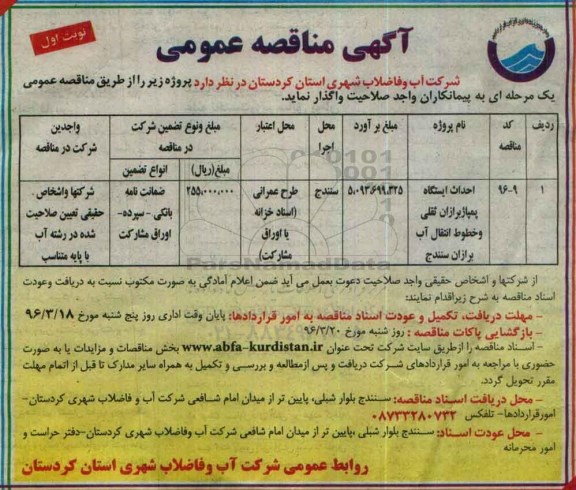 نوبت اول
آگهی مناقصه عمومی
شرکت آب وفاضلاب شهری استان کردستان در نظر دارد پروژه زیر را از طریق مناقصه عمومی
یک مرحله ای به پیمانکاران واجد صلاحیت واگذار نماید.
ردیف
کد مناقصه
نام پروژه
مبلغ بر آورد
محل اجرا
محل اعتبار
مبلغ ونوع تضمین شرکت در مناقصه
واجدین شرکت در مناقصه
مبلغ(ریال)
انواع تضمین
۱
۹۶-۹
احداث ایستگاه پمپاژبرازان ثقلی وخطوط انتقال آب برازان سنندج
۵,۰۹۳,۶۹۹,۳۲۵
سنندج
طرح عمرانی (اسناد خزانه یا اوراق مشارکت)
۲۵۵,۰۰۰,۰۰۰
ضمانت نامه بانکی - سپرده- اوراق مشارکت
شرکتها واشخاص حقیقی تعیین صلاحیت شده در رشته آب با پایه متناسب
ParsNamadData
از شرکتها و اشخاص حقیقی واجد صلاحیت دعوت بعمل می آید ضمن اعلام آمادگی به صورت مکتوب نسبت به دریافت وعودت
اسناد مناقصه به شرح زیراقدام نمایند:
- مهلت دریافت، تکمیل و عودت اسناد مناقصه به امور قراردادها: پایان وقت اداری روز پنج شنبه مورخ ۹۶/۳/۱۸
- بازگشایی پاکات مناقصه : روز شنبه مورخ ۹۶/۳/۲۰
- اسناد مناقصه را ازطریق سایت شرکت تحت عنوان www.abfa-kurdistan.ir بخش مناقصات و مزایدات یا به صورت
حضوری با مراجعه به امور قراردادهای شرکت دریافت و پس ازمطالعه و بررسی و تکمیل به همراه سایر مدارک تا قبل از اتمام مهلت
مقرر تحویل گردد.
- محل دریافت اسناد مناقصه: سنندج بلوار شبلی، پایین تر از میدان امام شافعی شرکت آب و فاضلاب شهری کردستان-
امورقراردادها- تلفکس ۰۸۷۳۳۲۸۰۷۳۲
- محل عودت اسناد: سنندج بلوار شبلی ،پایین تر از میدان امام شافعی شرکت آب وفاضلاب شهری کردستان-دفتر حراست و
امور محرمانه
روابط عمومی شرکت آب وفاضلاب شهری استان کردستان